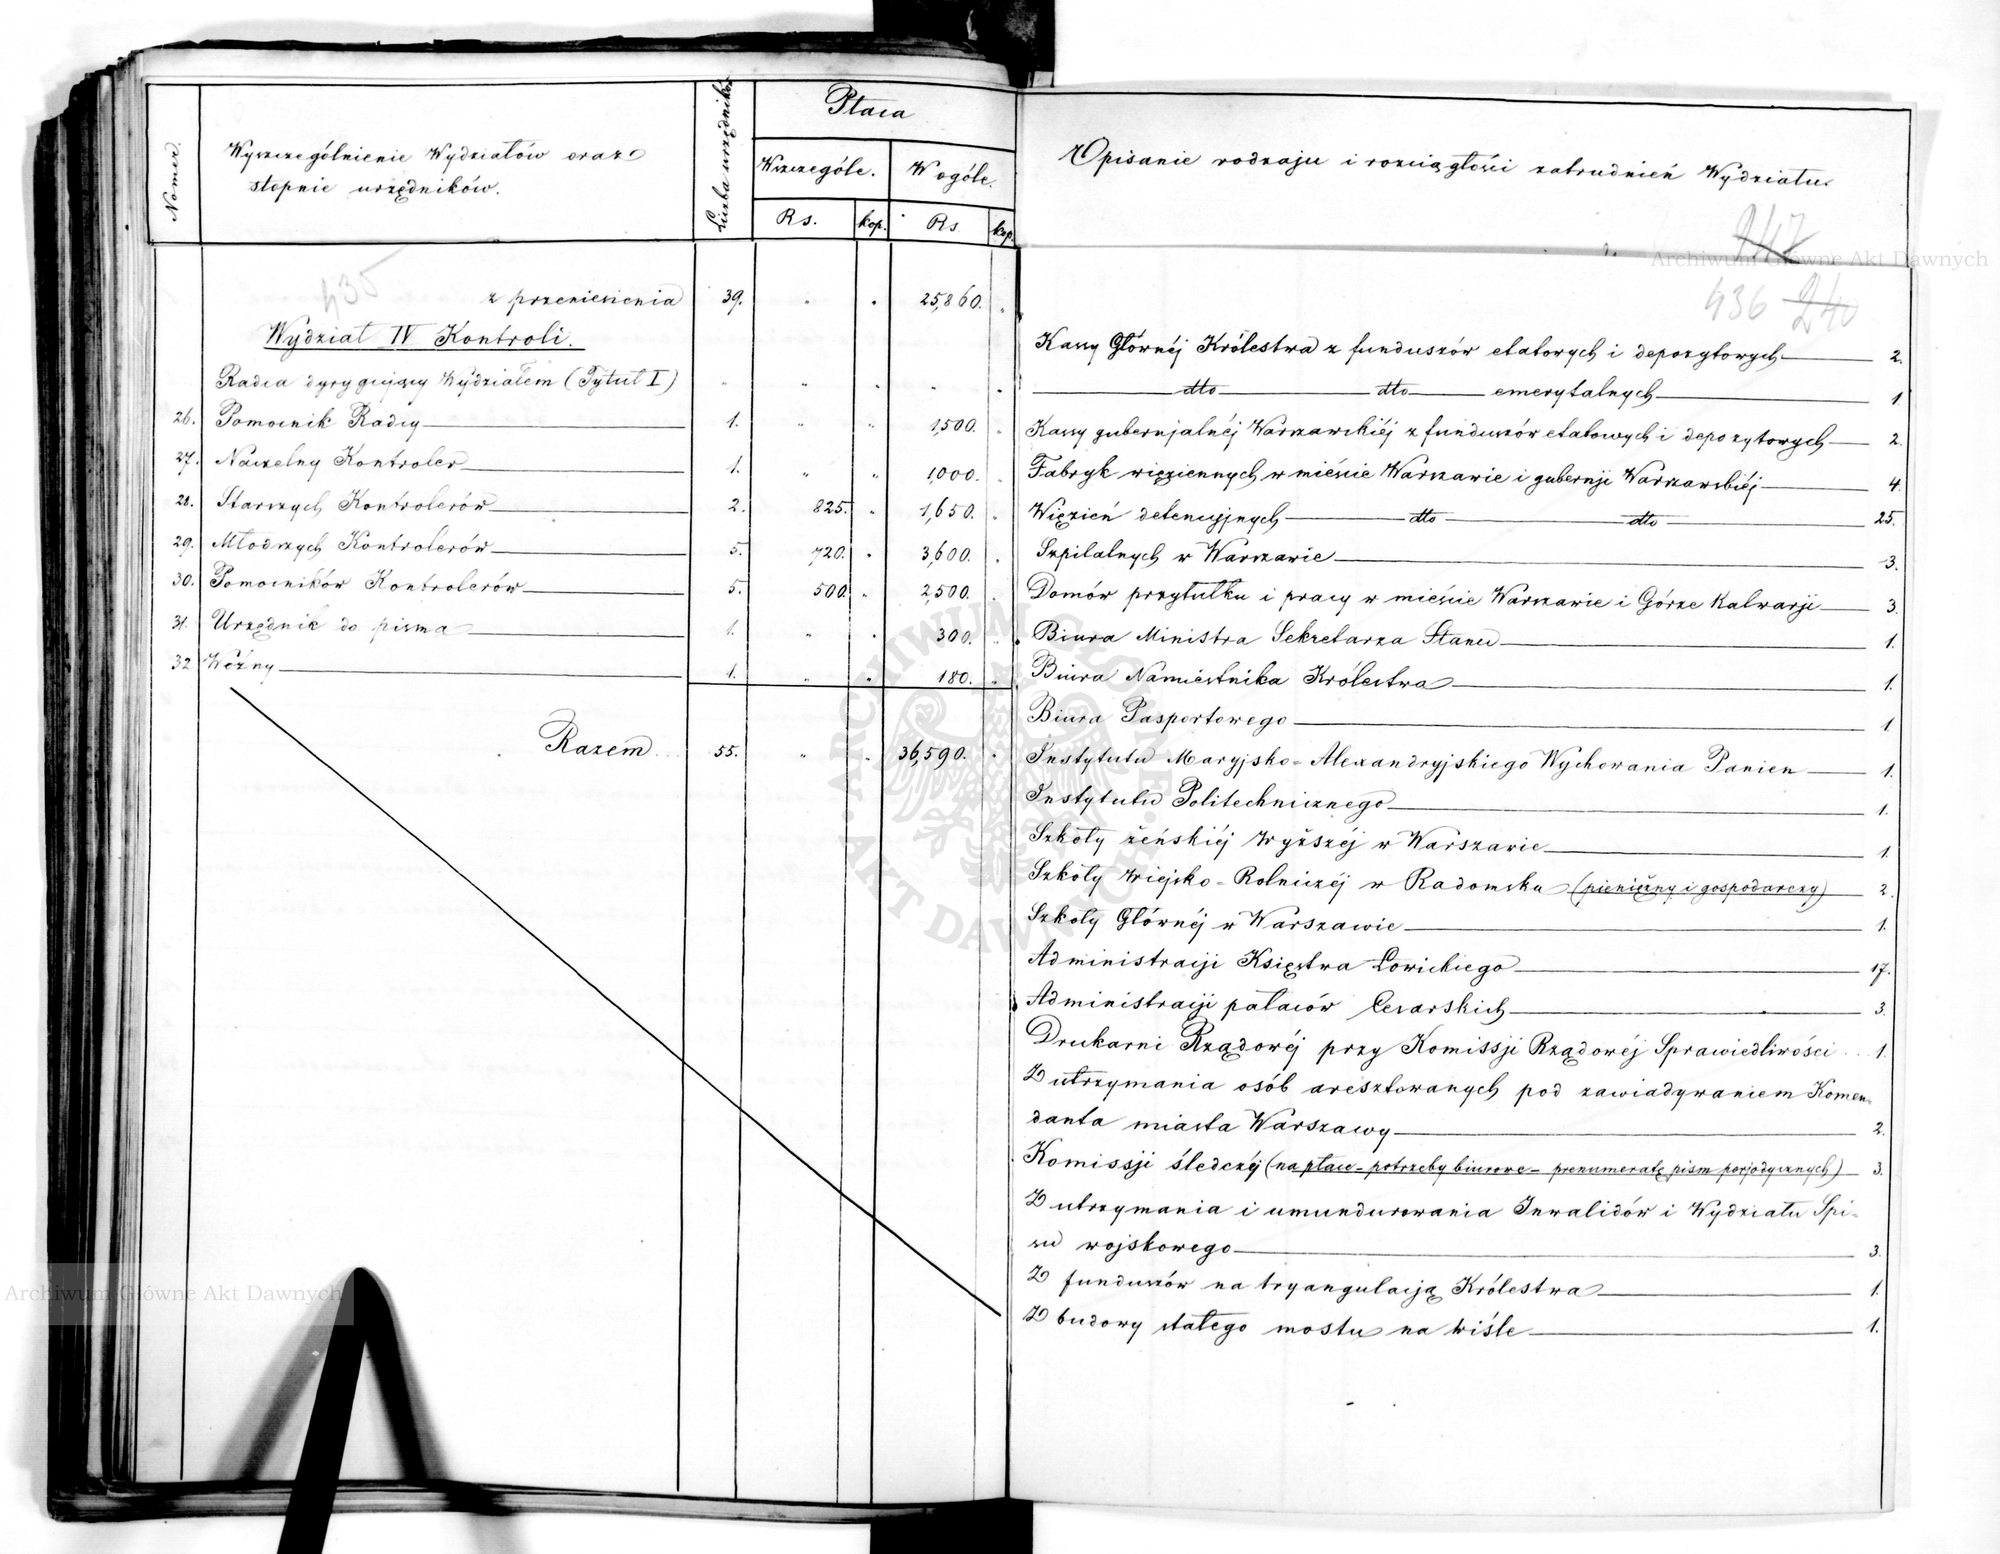 Płaca
Nomer.
Wyszczególnienie Wydziałów oraz
stopnie urzędników.
Liczba urzędników
Wszczególe.
Wogóle.
Rs.
kop.
Rs.
kop.
435
z przeniesienia 39. " " 25,860. "
Wydział IV Kontroli.
Radca dyrygujący Wydziałem (Tytuł I) " " " " "
26. Pomocnik Radcy 1. " " 1,500. "
27. Naczelny Kontroler 1. " " 1,000. "
28. Starszych Kontrolerów 2. 825. " 1,650. "
29. Młodszych Kontrolerów 5. 720. " 3,600. "
30. Pomocników Kontrolerów 5. 500. " 2,500. "
31. Urzędnik do pisma 1. " " 300. "
32 Woźny 1. " " 180. "
Razem 55. " " 36,590. "
Opisanie rodzaju i rozciągłości zatrudnień Wydziału.
247
436 240
Kassy Głównéj Królestwa z funduszów etatowych i depozytowych 2.
dto dto emerytalnych 1
Kassy gubernjalnéj Warszawskiéj z funduszów etatowych i depozytowych 2.
Fabryk więziennych w mieście Warszawie i gubernji Warszawskiéj 4.
Więzień detencyjnych dto dto 25.
Szpitalnych w Warszawie 3.
Domów przytułku i pracy w mieście Warszawie i Górze Kalwarji 3.
Biura Ministra Sekretarza Stanu 1.
Biura Namiestnika Królestwa 1.
Biura Pasportowego 1
Instytutu Maryjsko-Alexandryjskiego Wychowania Panien 1.
Instytutu Politechnicznego 1.
Szkoły żeńskiéj Wyższéj w Warszawie 1.
Szkoły Wiejsko-Rolniczéj w Radomsku (pieniężny i gospodarczy) 2.
Szkoły Głównéj w Warszawie 1.
Administracji Księstwa Łowickiego 17.
Administracji pałaców Cesarskich 3.
Drukarni Rządowéj przy Komissji Rządowéj Sprawiedliwości 1.
Z utrzymania osób aresztowanych pod zawiadywaniem Komen-
danta miasta Warszawy 2.
Komissji śledczéj (na płace - potrzeby biurowe - prenumeratę pism perjodycznych) 3.
Z utrzymania i umundurowania Inwalidów i Wydziału Spi-
su wojskowego 3.
Z funduszów na tryangulacją Królestwa 1.
Z budowy stałego mostu na Wiśle 1.
Archiwum Główne Akt Dawnych
Archiwum Główne Akt Dawnych